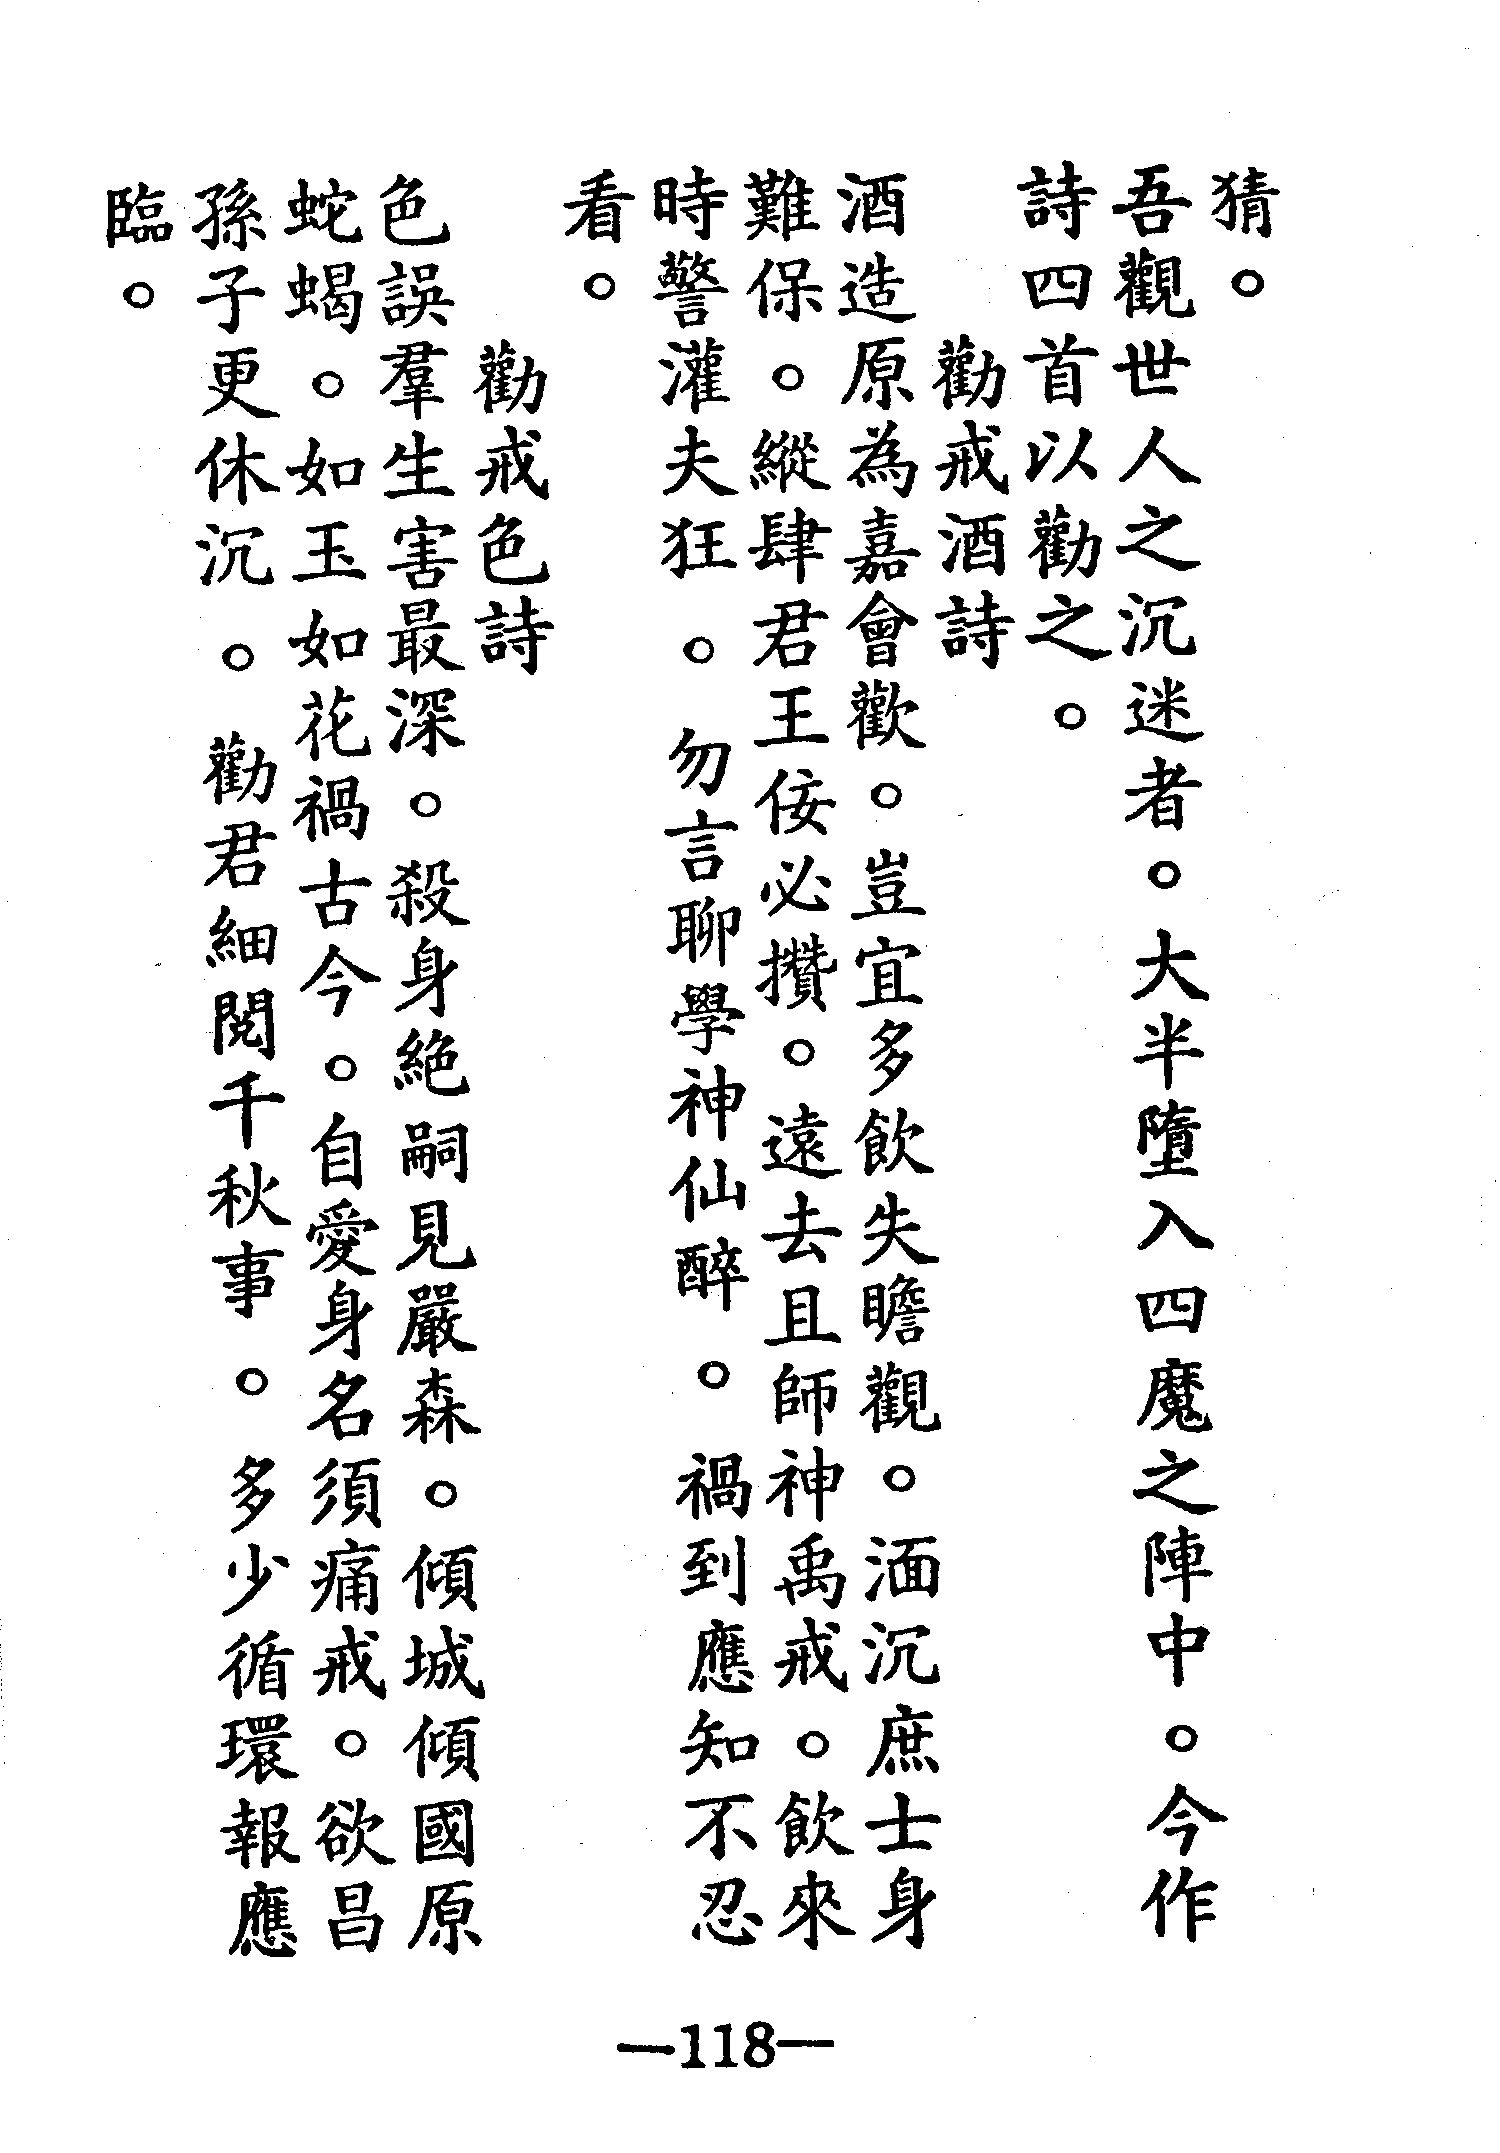 猜。
吾觀世人之沉迷者。大半墮入四魔之陣中。今作
詩四首以勸之。
勸戒酒詩
酒造原為嘉會歡。豈宜多飲失瞻觀。湎沉庶士身
難保。縱肆君王佞必攢。遠去且師神禹戒。飲來
時警灌夫狂。勿言聊學神仙醉。禍到應知不忍
看。
勸戒色詩
色誤羣生害最深。殺身絕嗣見嚴森。傾城傾國原
蛇蝎。如玉如花禍古今。自愛身名須痛戒。欲昌
孫子更休沉。勸君細閱千秋事。多少循環報應
臨。
—118—